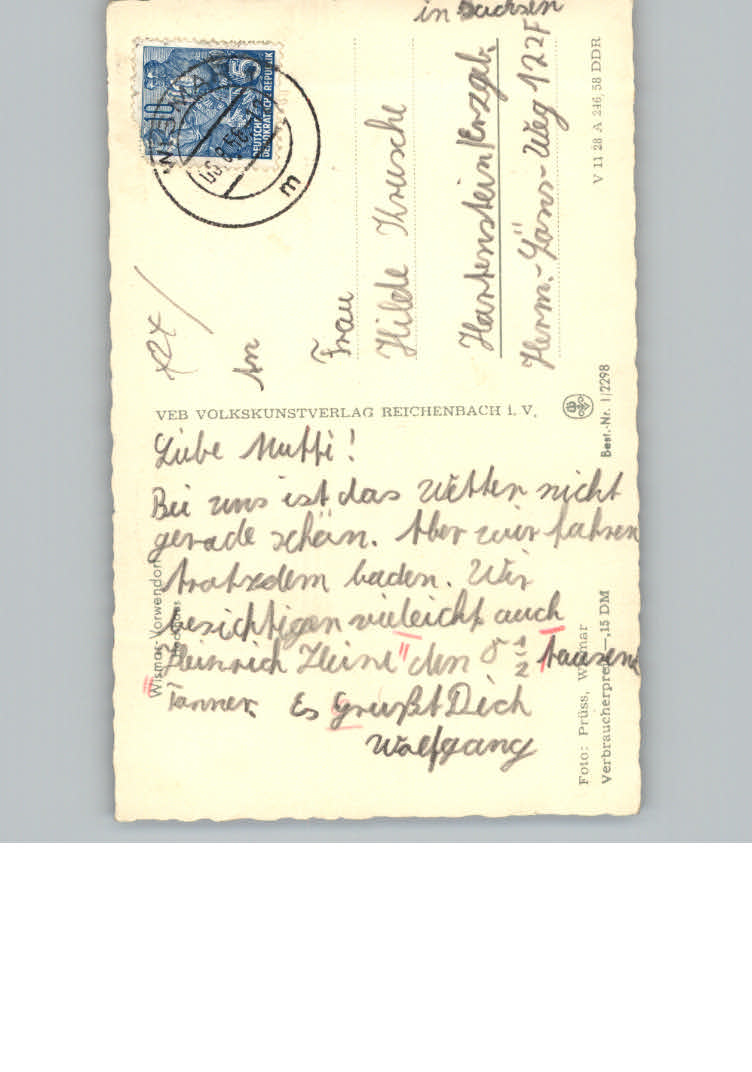 Liebe Mutti!
Bei uns ist das Wetter nicht
gerade schön. Aber wir fahren
trotzdem baden. Wir
besichtigen vieleicht auch
"Heinrich Heine" den 8 1/2 tausend
Tanner. Es Grüßt Dich
Wolfgang
An
Frau
Hilde Krusche
Hartenstein/Erzgeb.
Herm.-Löns-Weg 122F
in Sachsen
VEB VOLKSKUNSTVERLAG REICHENBACH i. V.
Wismar-Vorwendorf
Foto: Prüss, Wismar
Verbraucherpreis —,15 DM
Best.-Nr. 1/2298
V 11 28 A 246 58 DDR
DEUTSCHE
DEMOKRATISCHE REPUBLIK
5
10
m